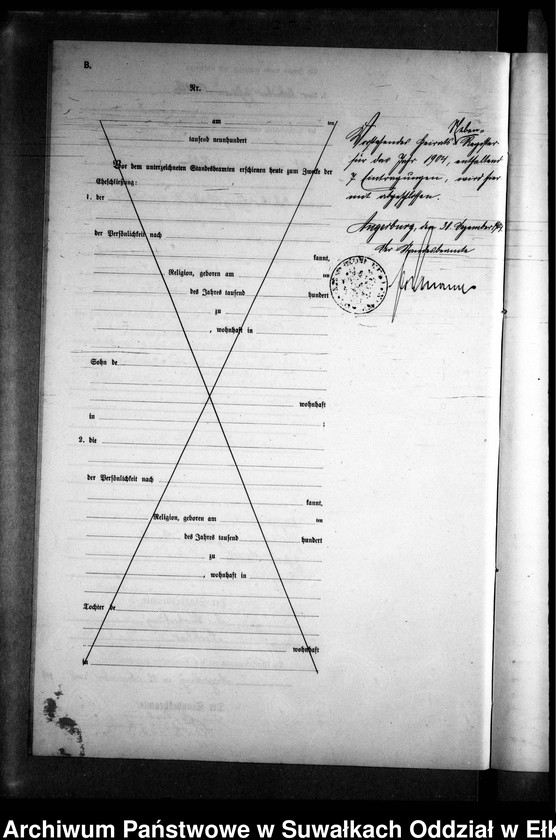 B.
Nr.
am ten
tausend neunhundert
Vor dem unterzeichneten Standesbeamten erschienen heute zum Zwecke der
Eheschließung:
1. der
der Persönlichkeit nach
kannt,
Religion, geboren am ten
des Jahres tausend hundert
zu
, wohnhaft in
Sohn de
wohnhaft
in ;
2. die
der Persönlichkeit nach
kannt,
Religion, geboren am ten
des Jahres tausend hundert
zu
, wohnhaft in
Tochter de
wohnhaft
in
Neben-
Vorstehendes Heirats-Register
für das Jahr 1904, enthaltend
7 Eintragungen, wird hier-
mit abgeschlossen.
Angerburg, den 31. Dezember 1904.
Der Standesbeamte
Archiwum Państwowe w Suwałkach Oddział w Ełk